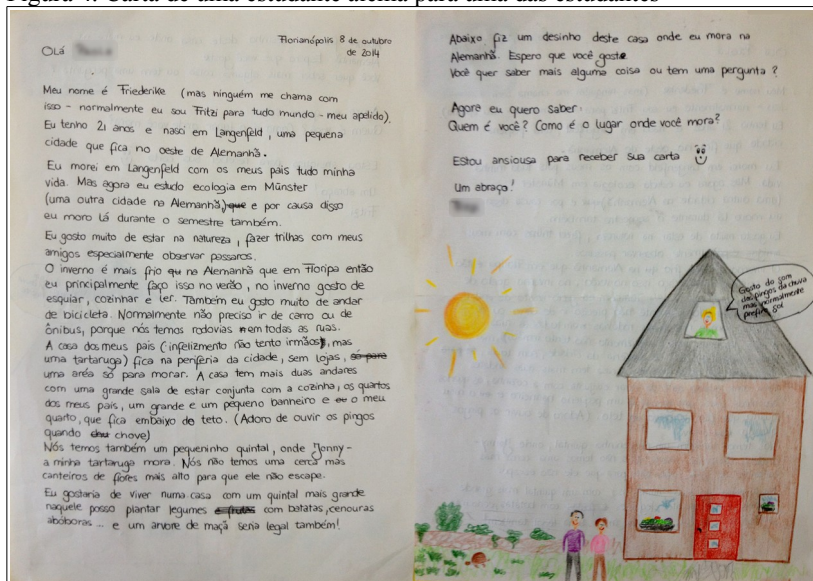 Figura 4: Carta de uma estudante alemã para uma das estudantes
Florianópolis 8 de outubro
de 2014
Olá
Meu nome é Friederike (mas ninguém me chama com
isso - normalmente eu sou Fritzi para tudo mundo - meu apelido).
Eu tenho 21 anos e nasci em Langenfeld, uma pequena
cidade que fica no oeste de Alemanhã.
Eu morei em Langenfeld com os meus pais tudo minha
vida. Mas agora eu estudo ecologia em Münster
(uma outra cidade na Alemanhã) que e por causa disso
eu moro lá durante o semestre também.
Eu gosto muito de estar na natureza, fazer trilhas com meus
amigos especialmente observar passaros.
O inverno é mais frio qu na Alemanhã que em Floripa então
eu principalmente faço isso no verão, no inverno gosto de
esquiar, cozinhar e ler. Também eu gosto muito de andar
de bicicleta. Normalmente não preciso ir de carro ou de
ônibus, porque nós temos rodovias em todas as ruas.
A casa dos meus pais (infelizmento não tento irmãos, mas
uma tartaruga) fica na periferia da cidade, sem lojas, só para
uma aréa só para morar. A casa tem mais duas andares
com uma grande sala de estar conjunta com a cozinha, os quartos
dos meus pais, um grande e um pequeno banneiro e o meu
quarto, que fica embaixo do teto. (Adoro de ouvir os pingos
quando chove)
Nós temos também um pequeninho quintal, onde Jonny -
a minha tartaruga mora. Nós não temos uma cerca mas
canteiros de flores mais alto para que ele não escape.
Eu gostaria de viver numa casa com um quintal mais grande
naquele posso plantar legumes e frutas com batatas, cenouras
abóboras ... e um arvore de maçã seria legal também!
Abaixo fiz um desinho deste casa onde eu mora na
Alemanhã. Espero que você goste
Você quer saber mais alguma coisa ou tem uma pergunta?
Agora eu quero saber:
Quem é você? Como é o lugar onde você mora?
Estou ansiousa para receber sua carta
Um abraço!
Gosto do som
dos pingos da chuva
mas normalmente
prefiro sol